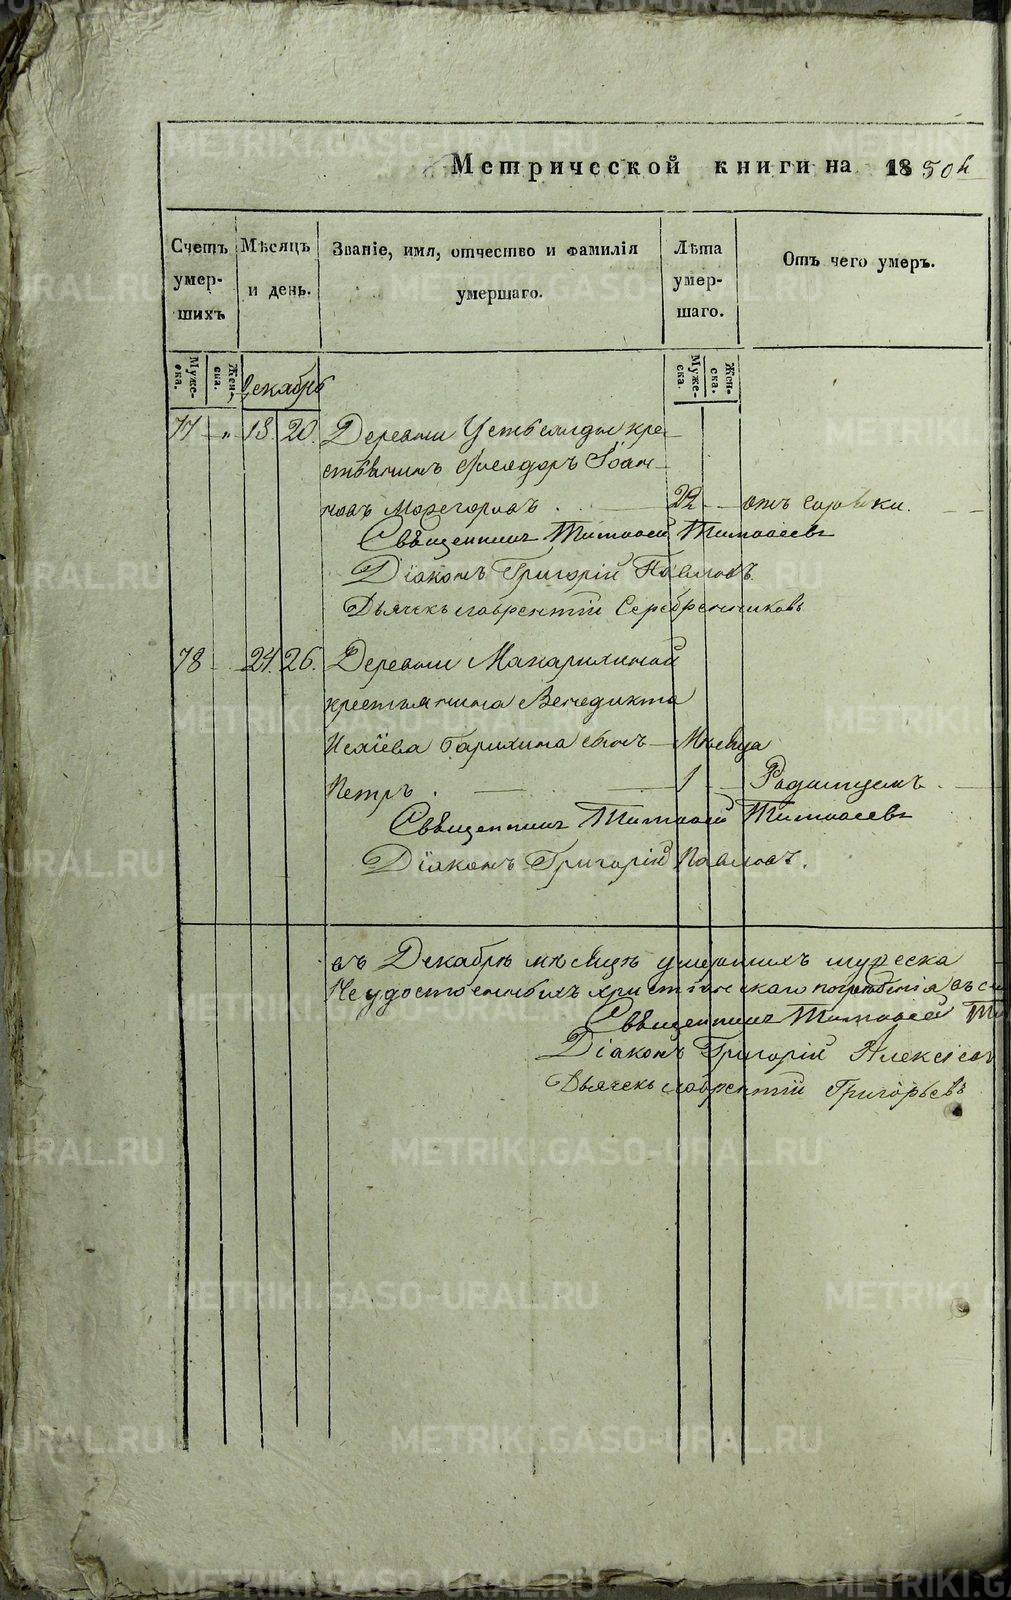 Метрической книги на 1850 й
Счетъ умершихъ
Мѣсяцъ и день.
Званіе, имя, отчество и фамилія умершаго.
Лѣта умершаго.
Отъ чего умеръ.
Мужеска.
Женска.
Декабрь
Мужеска.
Женска.
77 — „ 18 20. Деревни кре-
стьянинъ Ѳеодоръ Іоан-
новъ 22 — отъ горячки.
Священникъ Тимоѳей Тимоѳеевъ
Діаконъ Григорій Павловъ
Дьячекъ Лаврентій Серебренниковъ
78 — 24. 26. Деревни Макарихиной
крестьянина Венедикта
сынъ — Мѣсяца
Петръ . — 1 — Родимцемъ.
Священникъ Тимоѳей Тимоѳеевъ
Діаконъ Григорій Павловъ.
въ Декабрѣ мѣсяцѣ умершихъ мужеска
Неудостоенныхъ христіанскаго погребенія въ
Священникъ Тимоѳей
Діаконъ Григорій
Дьячекъ Лаврентій Григорьевъ
METRIKI.GASO-URAL.RU